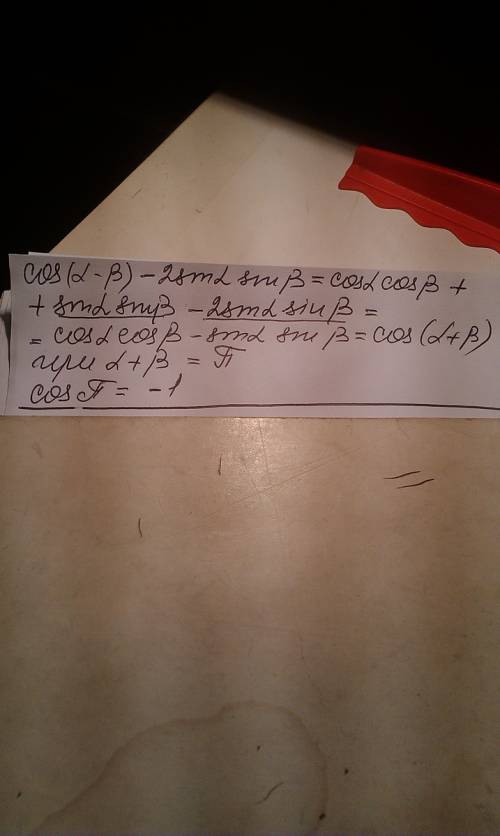 cos(α-β) - 2sinα sinβ = cosα cosβ +
+ sinα sinβ - 2sinα sinβ =
= cosα cosβ - sinα sinβ = cos(α+β)
при α+β = π
cos π = -1